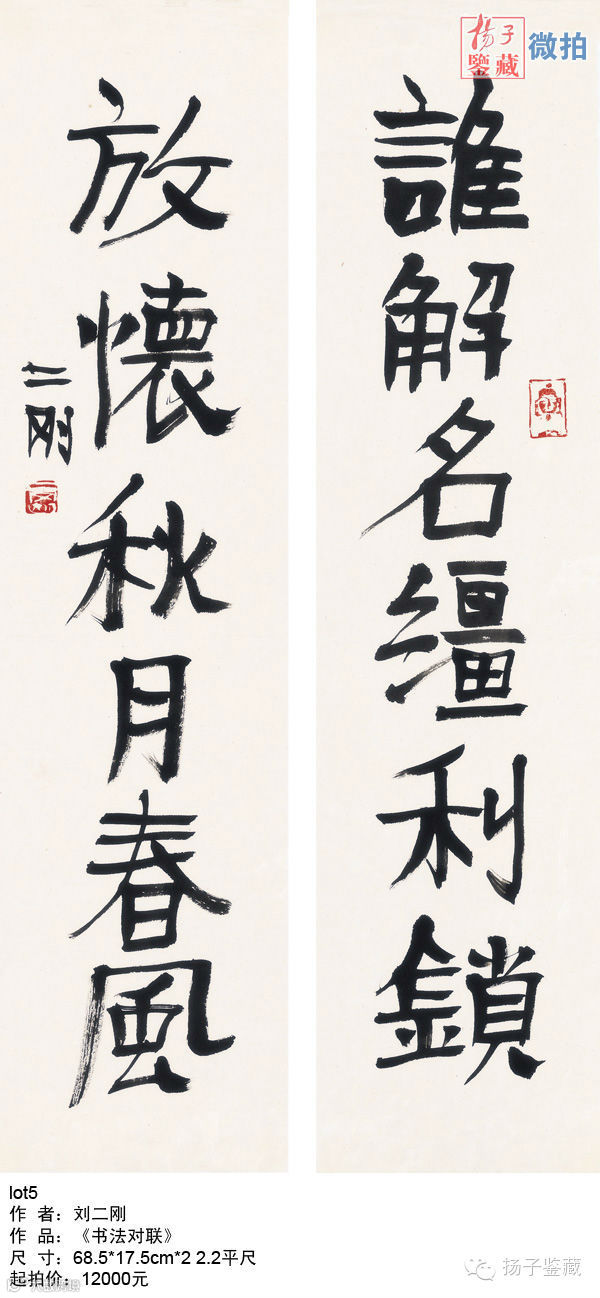 扬子
鑒藏
微拍
誰解名繮利鎖
放懷秋月春風
二刚
lot5
作 者：刘二刚
作 品：《书法对联》
尺 寸：68.5*17.5cm*2 2.2平尺
起拍价：12000元
扬子鉴藏